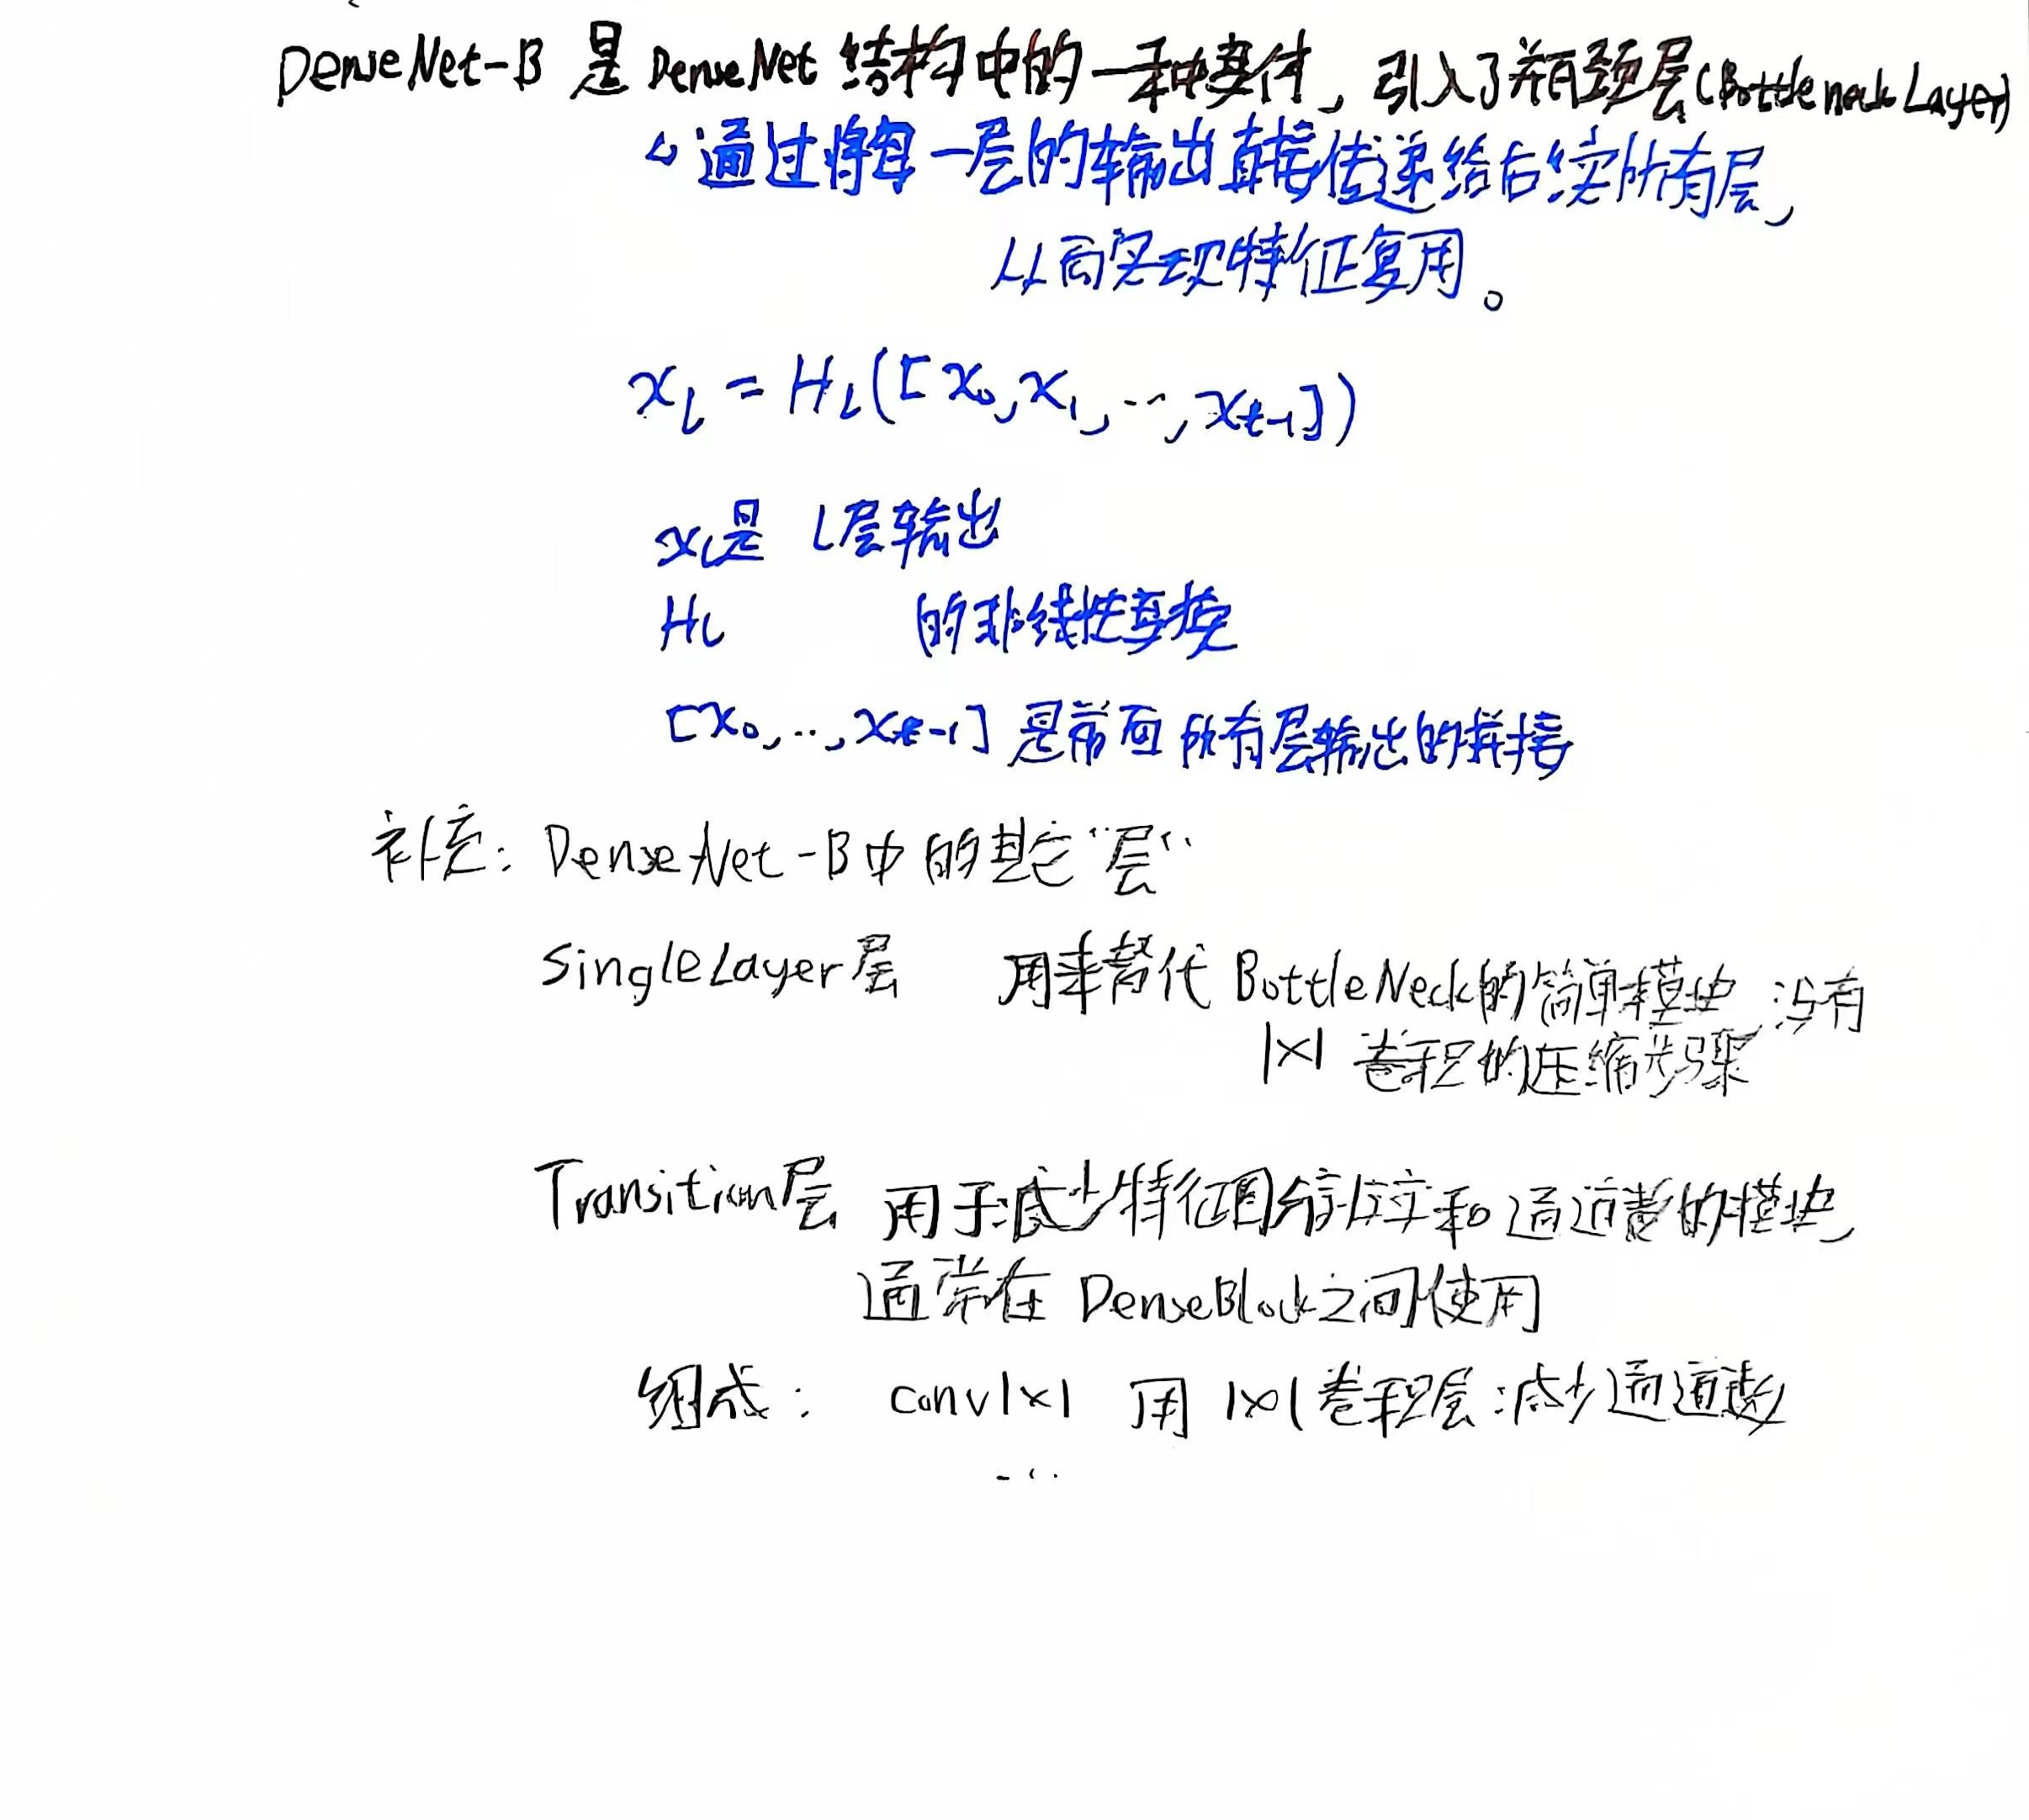 DenseNet-B 是 DenseNet 结构中的一种变体，引入了瓶颈层(Bottleneck Layer)
通过将每一层的输出直接传递给后续所有层，
从而实现特征复用。
x_l = H_l([x_0, x_1, ..., x_{t-1}])
x_l是 l层输出
H_l 的非线性变换
[x_0, .., x_{t-1}] 是前面所有层输出的拼接
补充: DenseNet-B中的其它"层"
SingleLayer层 用来替代 BottleNeck的简单模块，没有
1×1 卷积的压缩步骤
Transition层 用于减少特征图和通道数的模块，
通常在 DenseBlock之间使用
组成: conv1×1 用 1×1卷积层减少通道数
...